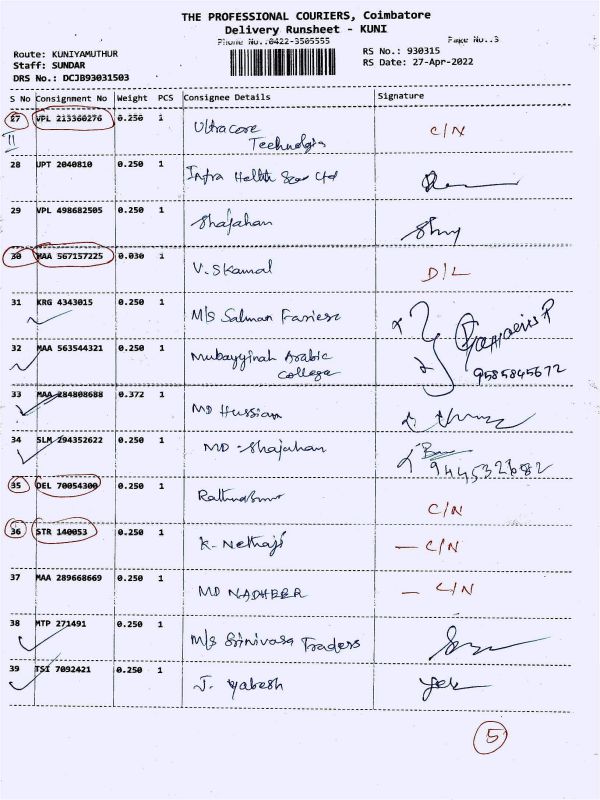 THE PROFESSIONAL COURIERS, Coimbatore
Delivery Runsheet - KUNI
Phone No.:0422-3505555
Page No.:3
Route: KUNIYAMUTHUR
Staff: SUNDAR
DRS No.: DCJB93031503
RS No.: 930315
RS Date: 27-Apr-2022
S No Consignment No Weight PCS Consignee Details Signature
27 VPL 213360276 0.250 1 Ultracare C/N
II Technologis
28 UPT 2040810 0.250 1 Infra Health Ltd
29 VPL 498682505 0.250 1 Shajahan
30 MAA 567157225 0.030 1 V.S Kamal D/L
31 KRG 4343015 0.250 1 M/s Salman
32 MAA 563544321 0.250 1 Mubayyinah Arabic
College 9585845672
33 MAA 284808688 0.372 1 MD Hussian
34 SLM 294352622 0.250 1 MD - Shajahan
9445321682
35 DEL 70054300 0.250 1 C/N
36 STR 140053 0.250 1 K. Nethaji — C/N
37 MAA 289668669 0.250 1 MD NADHEER — C/N
38 MTP 271491 0.250 1 M/s Srinivasa Traders
39 TSI 7092421 0.250 1 J. Yabesh
5